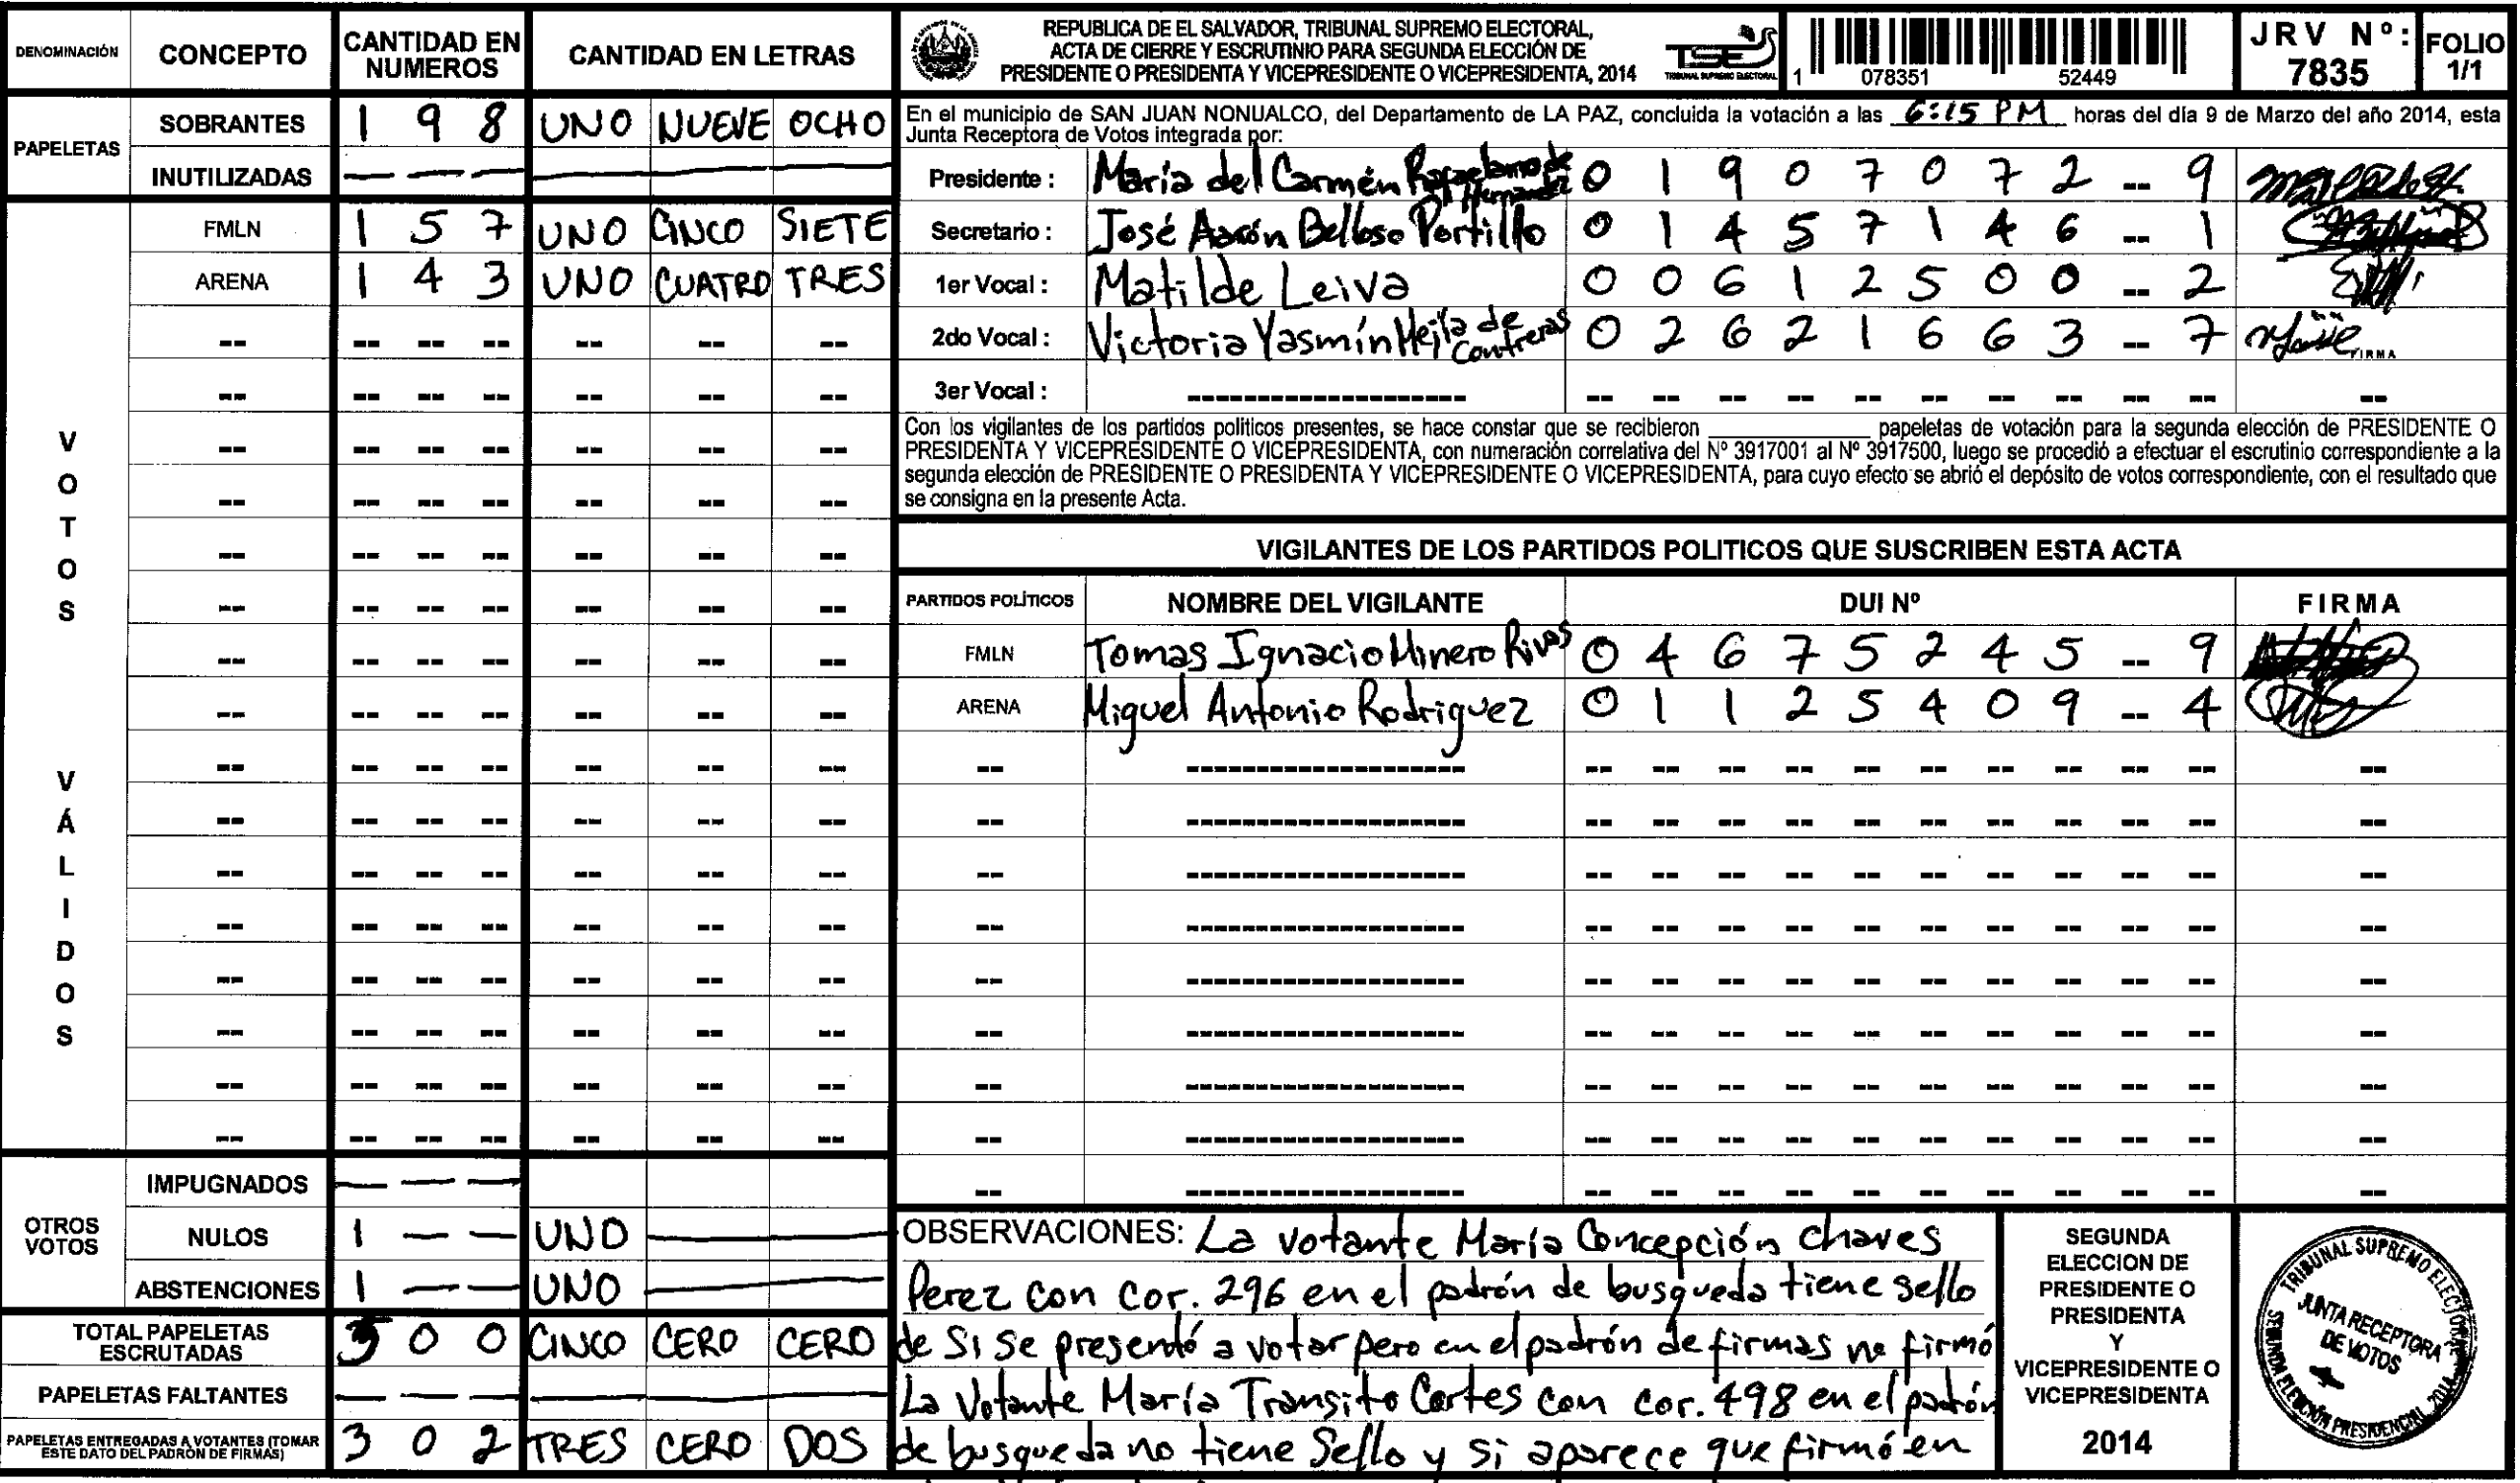 DENOMINACIÓN CONCEPTO CANTIDAD EN NUMEROS CANTIDAD EN LETRAS
PAPELETAS
SOBRANTES 1 9 8 UNO NUEVE OCHO
INUTILIZADAS — — —
VOTOS VÁLIDOS
FMLN 1 5 7 UNO CINCO SIETE
ARENA 1 4 3 UNO CUATRO TRES
OTROS VOTOS
IMPUGNADOS — — —
NULOS 1 — — UNO
ABSTENCIONES 1 — — UNO
TOTAL PAPELETAS ESCRUTADAS 5 0 0 CINCO CERO CERO
PAPELETAS FALTANTES — — —
PAPELETAS ENTREGADAS A VOTANTES (TOMAR ESTE DATO DEL PADRÓN DE FIRMAS) 3 0 2 TRES CERO DOS
REPUBLICA DE EL SALVADOR, TRIBUNAL SUPREMO ELECTORAL,
ACTA DE CIERRE Y ESCRUTINIO PARA SEGUNDA ELECCIÓN DE
PRESIDENTE O PRESIDENTA Y VICEPRESIDENTE O VICEPRESIDENTA, 2014
TSE
TRIBUNAL SUPREMO ELECTORAL
1 078351 52449
JRV Nº: 7835
FOLIO 1/1
En el municipio de SAN JUAN NONUALCO, del Departamento de LA PAZ, concluida la votación a las 6:15 PM horas del día 9 de Marzo del año 2014, esta
Junta Receptora de Votos integrada por:
Presidente : María del Carmén de Hernandez 0 1 9 0 7 0 7 2 -- 9
Secretario : José Aarón Belloso Portillo 0 1 4 5 7 1 4 6 -- 1
1er Vocal : Matilde Leiva 0 0 6 1 2 5 0 0 -- 2
2do Vocal : Victoria Yasmín Mejía de Contreras 0 2 6 2 1 6 6 3 -- 7
FIRMA
3er Vocal :
Con los vigilantes de los partidos politicos presentes, se hace constar que se recibieron ____ papeletas de votación para la segunda elección de PRESIDENTE O
PRESIDENTA Y VICEPRESIDENTE O VICEPRESIDENTA, con numeración correlativa del Nº 3917001 al Nº 3917500, luego se procedió a efectuar el escrutinio correspondiente a la
segunda elección de PRESIDENTE O PRESIDENTA Y VICEPRESIDENTE O VICEPRESIDENTA, para cuyo efecto se abrió el depósito de votos correspondiente, con el resultado que
se consigna en la presente Acta.
VIGILANTES DE LOS PARTIDOS POLITICOS QUE SUSCRIBEN ESTA ACTA
PARTIDOS POLÍTICOS NOMBRE DEL VIGILANTE DUI Nº FIRMA
FMLN Tomas Ignacio Minero Rivas 0 4 6 7 5 2 4 5 -- 9
ARENA Miguel Antonio Rodriguez 0 1 1 2 5 4 0 9 -- 4
OBSERVACIONES: La votante María Concepción Chaves
Perez con cor. 296 en el padrón de busqueda tiene sello
de Si se presentó a votar pero en el padrón de firmas no firmó
La Votante María Transito Cortes con cor. 498 en el padrón
de busqueda no tiene Sello y si aparece que firmó en
SEGUNDA
ELECCION DE
PRESIDENTE O
PRESIDENTA
Y
VICEPRESIDENTE O
VICEPRESIDENTA
2014
TRIBUNAL SUPREMO ELECTORAL
JUNTA RECEPTORA
DE VOTOS
SEGUNDA ELECCIÓN PRESIDENCIAL 2014